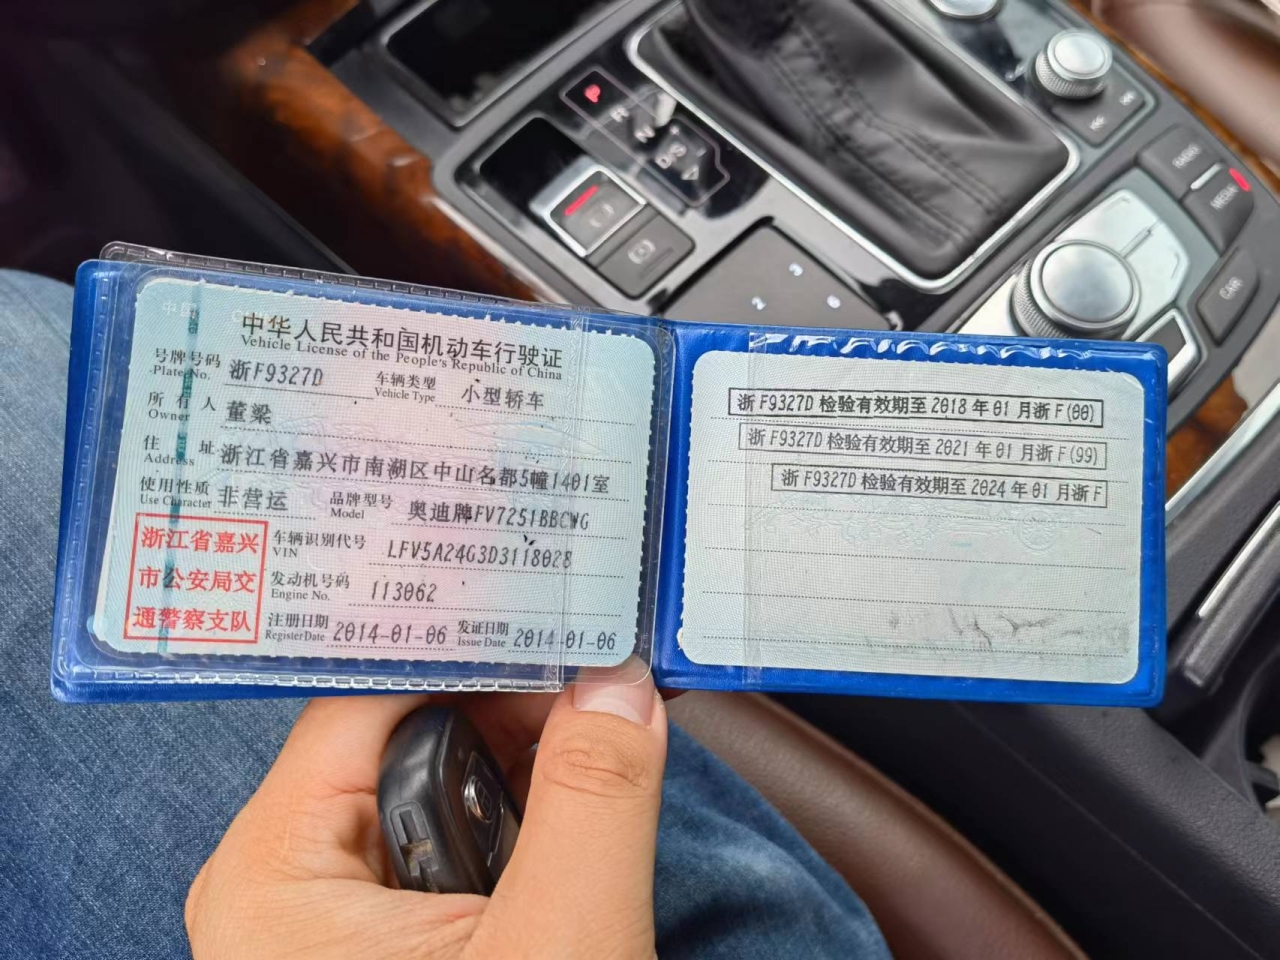 P
R
N
D/S
RADIO
MEDIA
CAR
2
3
6
中华人民共和国机动车行驶证
Vehicle License of the People's Republic of China
号牌号码 浙F9327D 车辆类型 小型轿车
Plate No. Vehicle Type
所有人 董梁
Owner
住址 浙江省嘉兴市南湖区中山名都5幢1401室
Address
使用性质 非营运 品牌型号 奥迪牌FV7251BBCWG
Use Character Model
浙江省嘉兴
市公安局交
通警察支队
车辆识别代号 LFV5A24G3D3118028
VIN
发动机号码 113062
Engine No.
注册日期 2014-01-06 发证日期 2014-01-06
Register Date Issue Date
浙F9327D检验有效期至2018年01月浙F(00)
浙F9327D检验有效期至2021年01月浙F(99)
浙F9327D检验有效期至2024年01月浙F